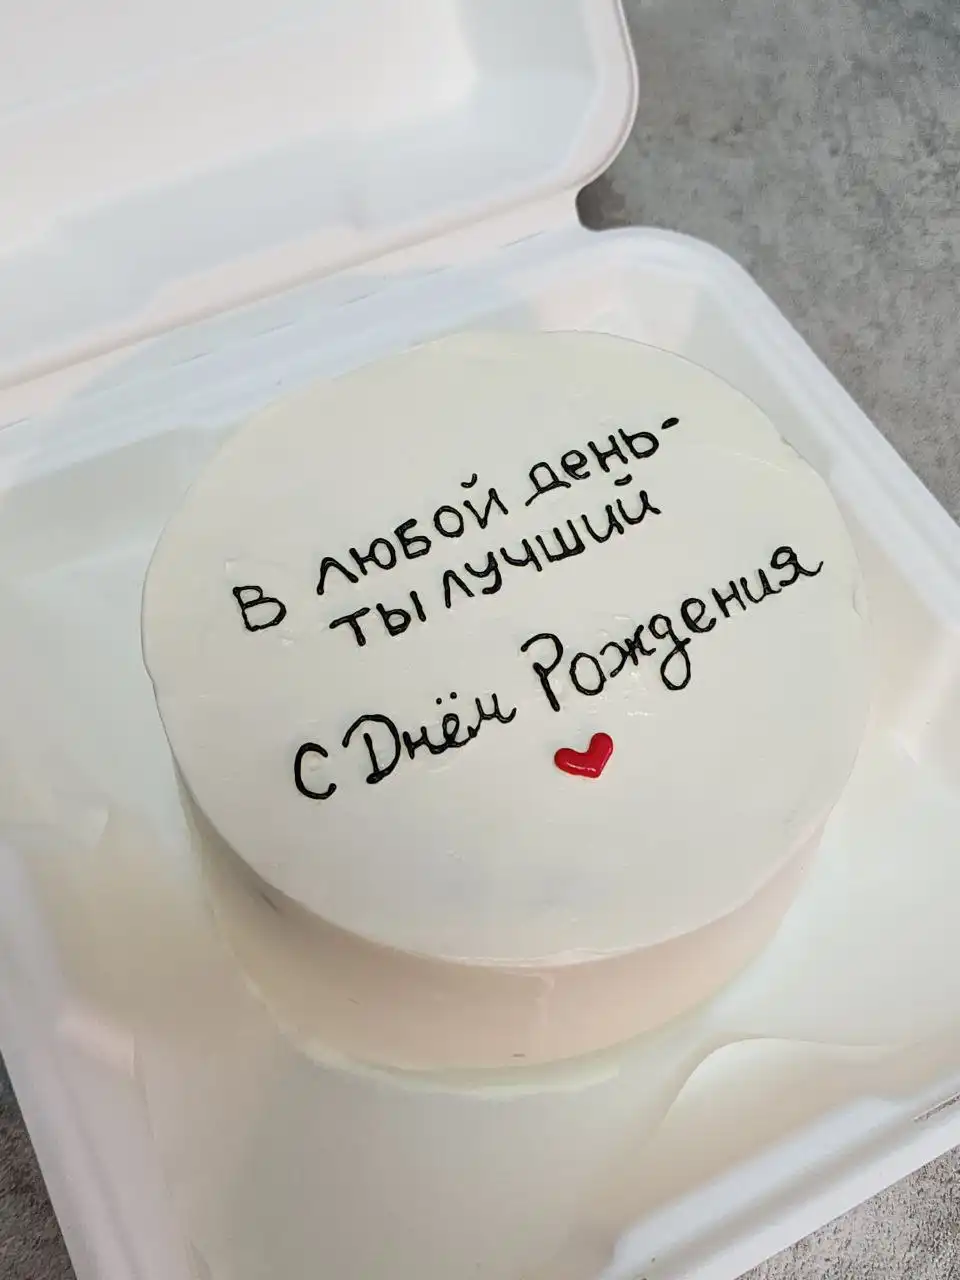 В любой день-
ты лучший
С Днём Рождения